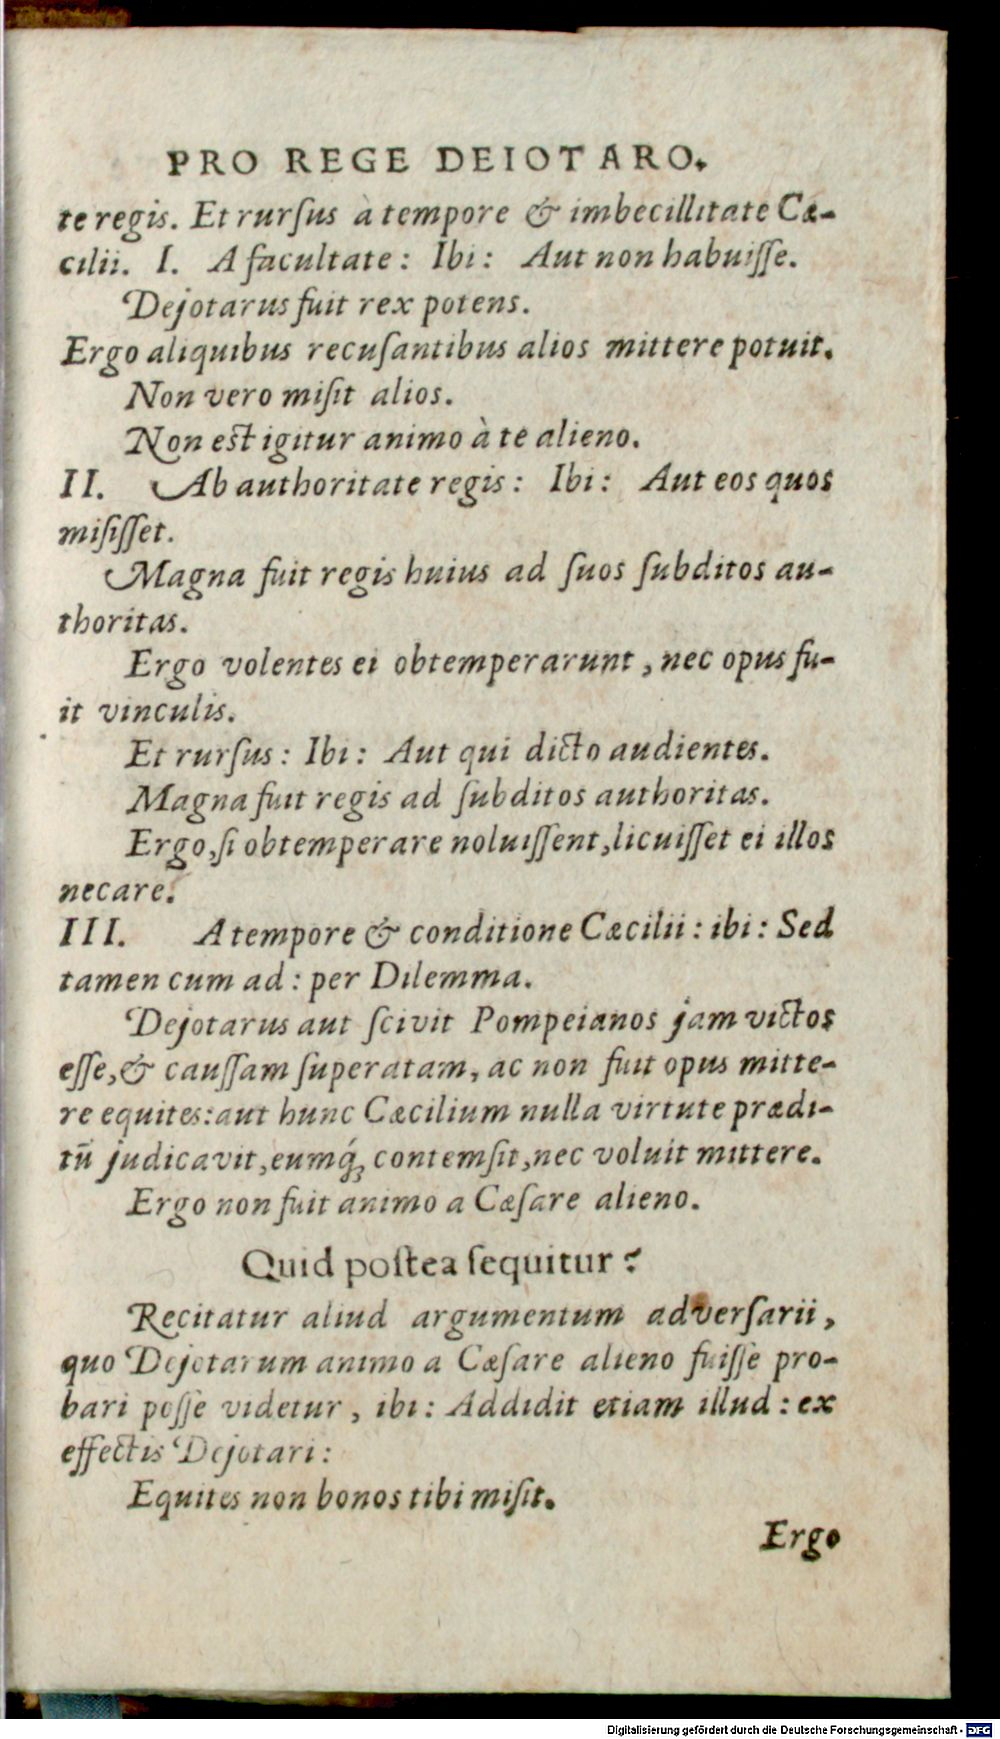 PRO REGE DEIOTARO.
te regis. Et rurſus à tempore & imbecillitate Cæ-
cilii. I. A facultate: Ibi: Aut non habuiſſe.
Dejotarus fuit rex potens.
Ergo aliquibus recuſantibus alios mittere potuit.
Non vero miſit alios.
Non est igitur animo à te alieno.
II. Ab authoritate regis: Ibi: Aut eos quos
miſiſſet.
Magna fuit regis huius ad ſuos ſubditos au-
thoritas.
Ergo volentes ei obtemperarunt, nec opus fu-
it vinculis.
Et rurſus: Ibi: Aut qui dicto audientes.
Magna fuit regis ad ſubditos authoritas.
Ergo, ſi obtemperare noluiſſent, licuiſſet ei illos
necare.
III. A tempore & conditione Cæcilii: ibi: Sed
tamen cum ad: per Dilemma.
Dejotarus aut ſcivit Pompeianos jam victos
eſſe, & cauſſam ſuperatam, ac non fuit opus mitte-
re equites: aut hunc Cæcilium nulla virtute prædi-
tū judicavit, eumq́; contemſit, nec voluit mittere.
Ergo non fuit animo a Cæſare alieno.
Quid poſtea ſequitur?
Recitatur aliud argumentum adverſarii,
quo Dejotarum animo a Cæſare alieno fuiſſe pro-
bari poſſe videtur, ibi: Addidit etiam illud: ex
effectis Dejotari:
Equites non bonos tibi miſit.
Ergo
Digitalisierung gefördert durch die Deutsche Forschungsgemeinschaft - DFG